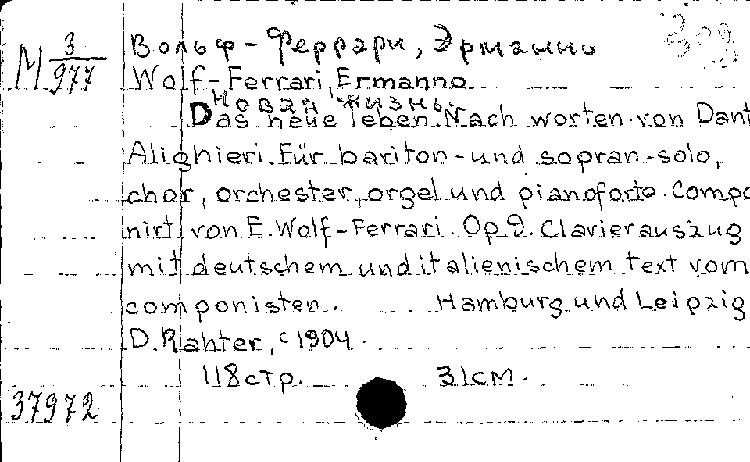 М 3/977
Вольф-Феррари, Эрманно
Wolf-Ferrari, Ermanno
Новая жизнь.
Das neue leben. Nach worten von Dant
Alighieri. Für bariton- und sopran-solo,
chor, orchester, orgel und pianoforte. Compo
nirt von E. Wolf-Ferrari. Op 9. Clavierauszug
mit deutschem und italienischem text vom
componisten. Hamburg und Leipzig
D. Rahter, c 1904.
118 стр. 31 см.
37972